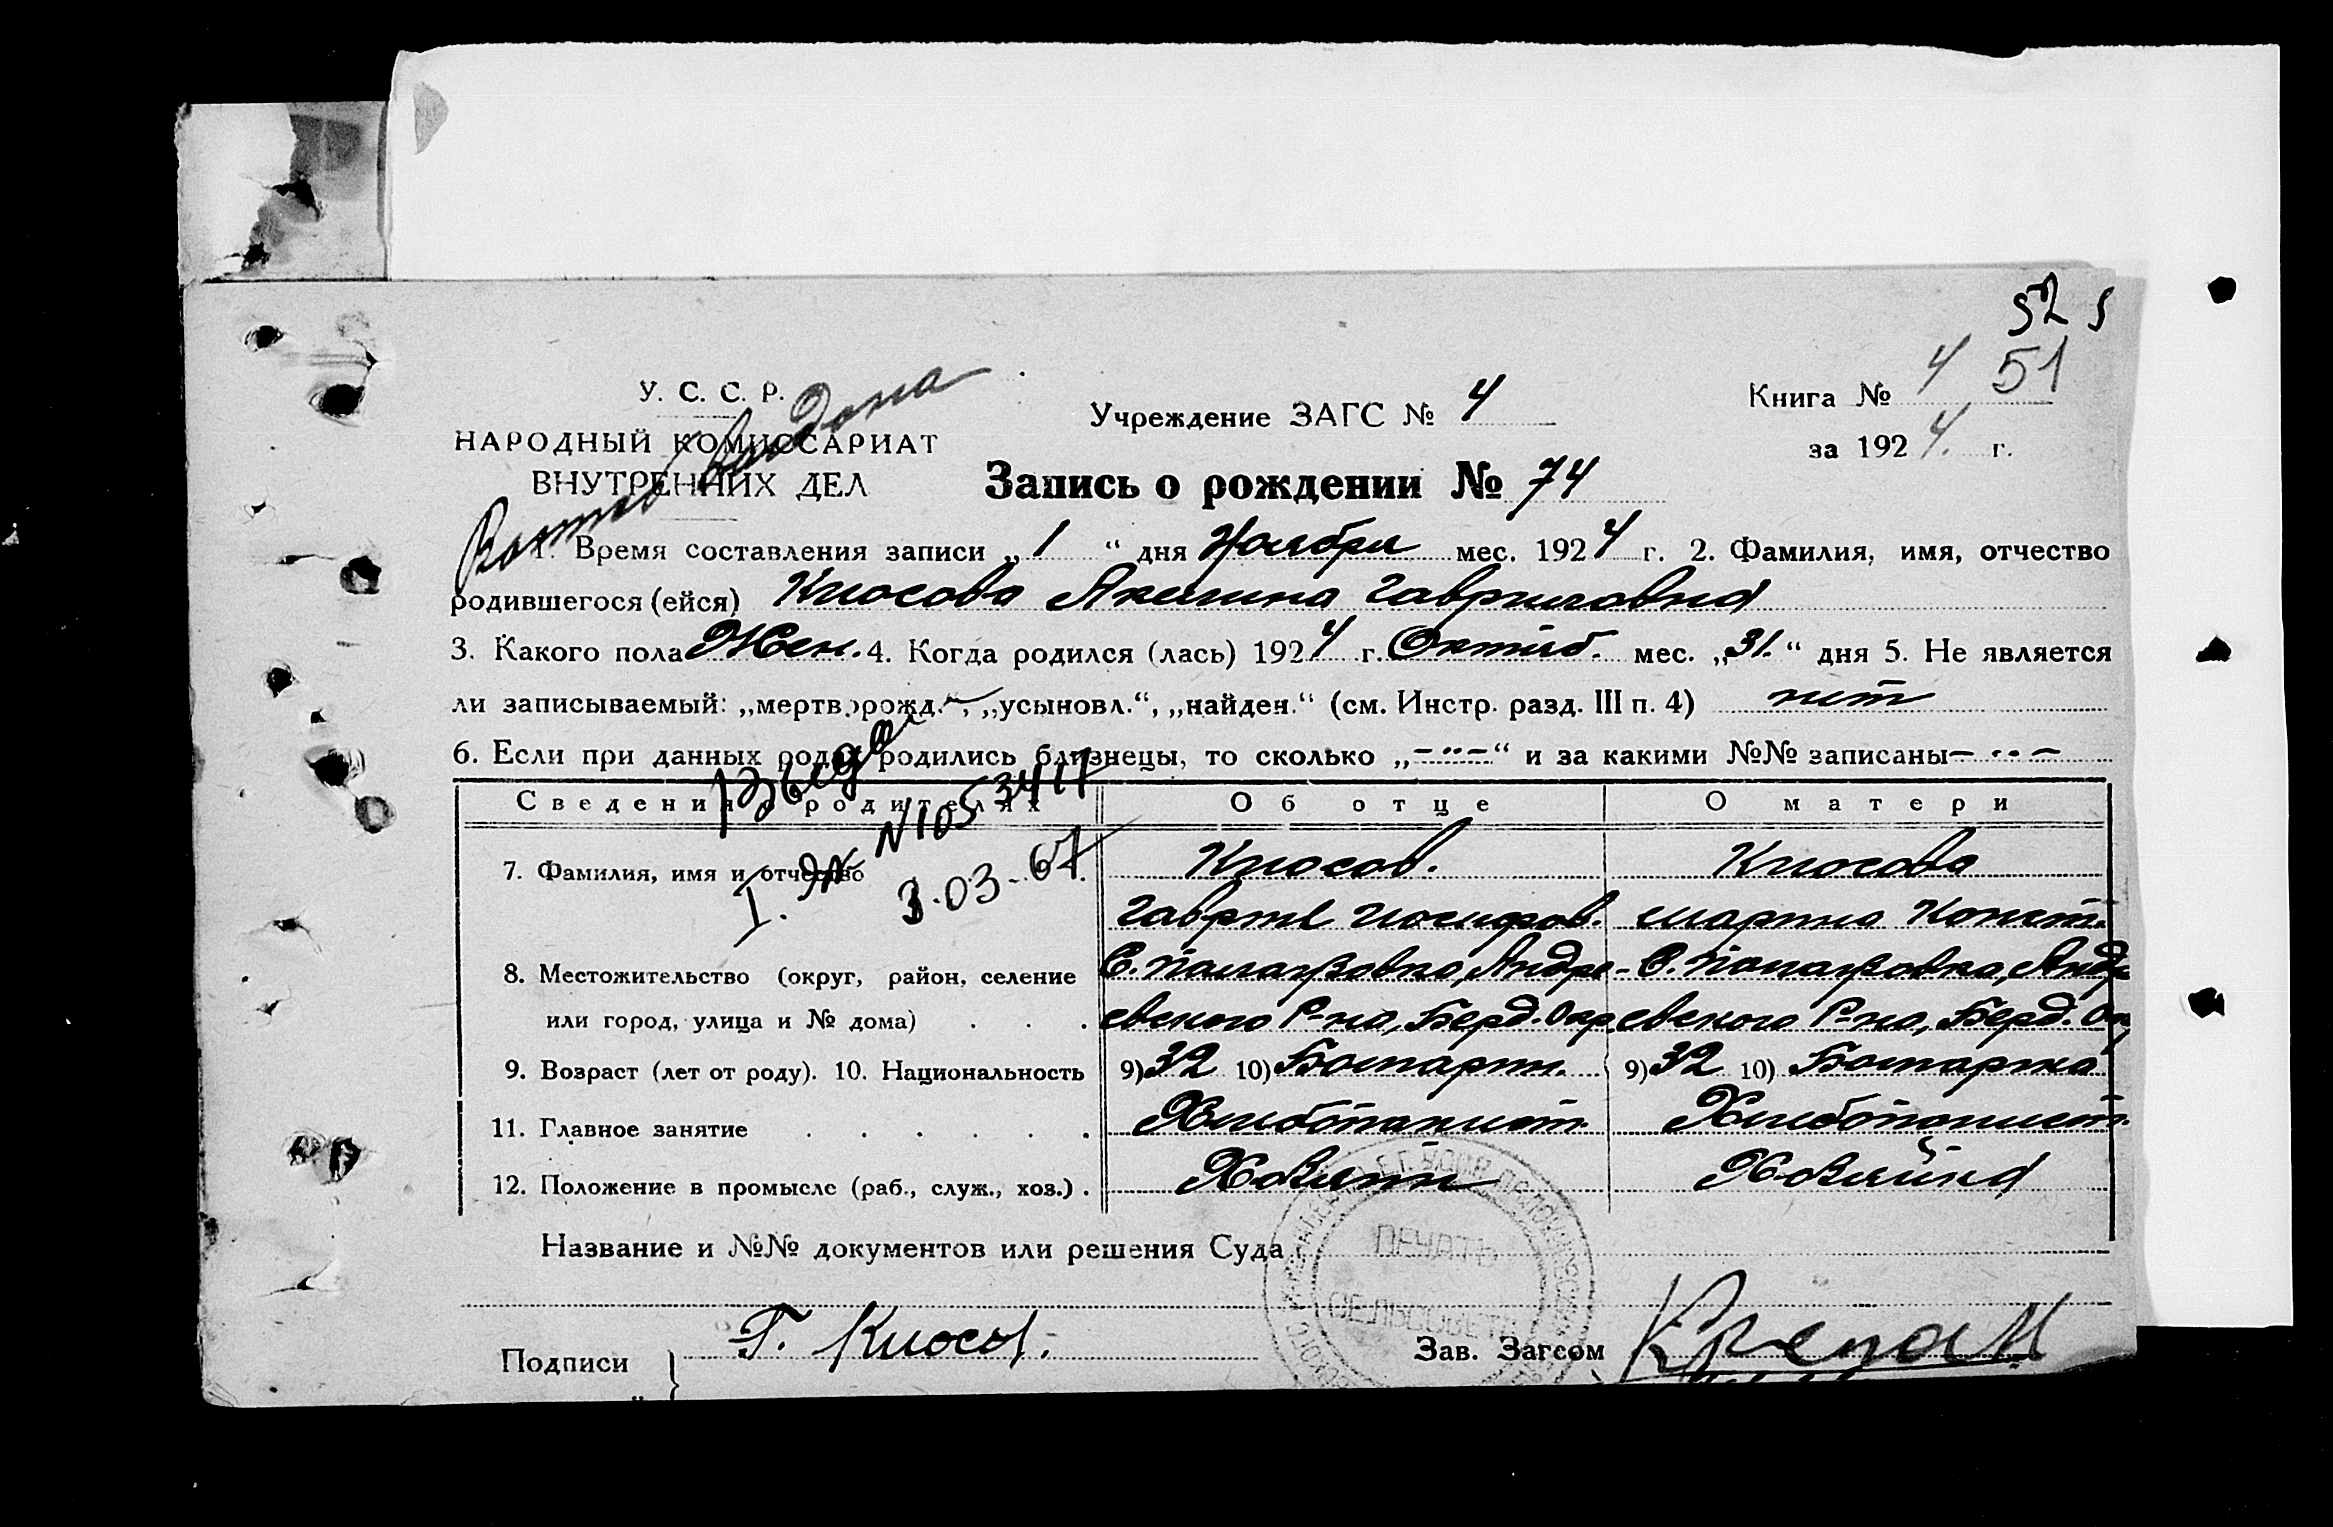 52 5
У. С. С. Р.
Учреждение ЗАГС № 4
Книга № 4 51
НАРОДНЫЙ КОМИССАРИАТ
за 1924 г.
ВНУТРЕННИХ ДЕЛ
Запись о рождении № 74
1. Время составления записи „1“ дня Ноября мес. 1924 г. 2. Фамилия, имя, отчество
родившегося (ейся) Киосова Акелина Гавриловна
3. Какого пола Жен. 4. Когда родился (лась) 1924 г. Октяб. мес. „31.“ дня 5. Не является
ли записываемый: „мертворожд.“, „усыновл.“, „найден.“ (см. Инстр. разд. III п. 4) нет
6. Если при данных родах родились близнецы, то сколько „-„-“ и за какими №№ записаны -„-
Сведения о родителях Об отце О матери
Выдан
I. ЯК №1053417
3-03-67
7. Фамилия, имя и отчество Киосов. Киосова
Гаврил Иосифов. Марина Конст.
8. Местожительство (округ, район, селение С. Палаузовка, Андре- С. Палаузовка, Андр
или город, улица и № дома) . . . евского Р-на, Берд. Окр. евского Р-на, Берд. Ок
9. Возраст (лет от роду). 10. Национальность 9) 32 10) Болгарин. 9) 32 10) Болгарка
11. Главное занятие . . . . . . Хлибопашет. Хлибопашет.
12. Положение в промысле (раб., служ., хоз.) . Хозяин Хозяйка
Название и №№ документов или решения Суда
ПЕЧАТЬ
СЕЛЬСОВЕТА
Подписи Г. Киосы. Зав. Загсом